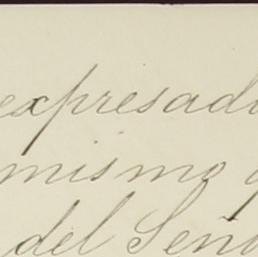 expresado
mismo
del Seño